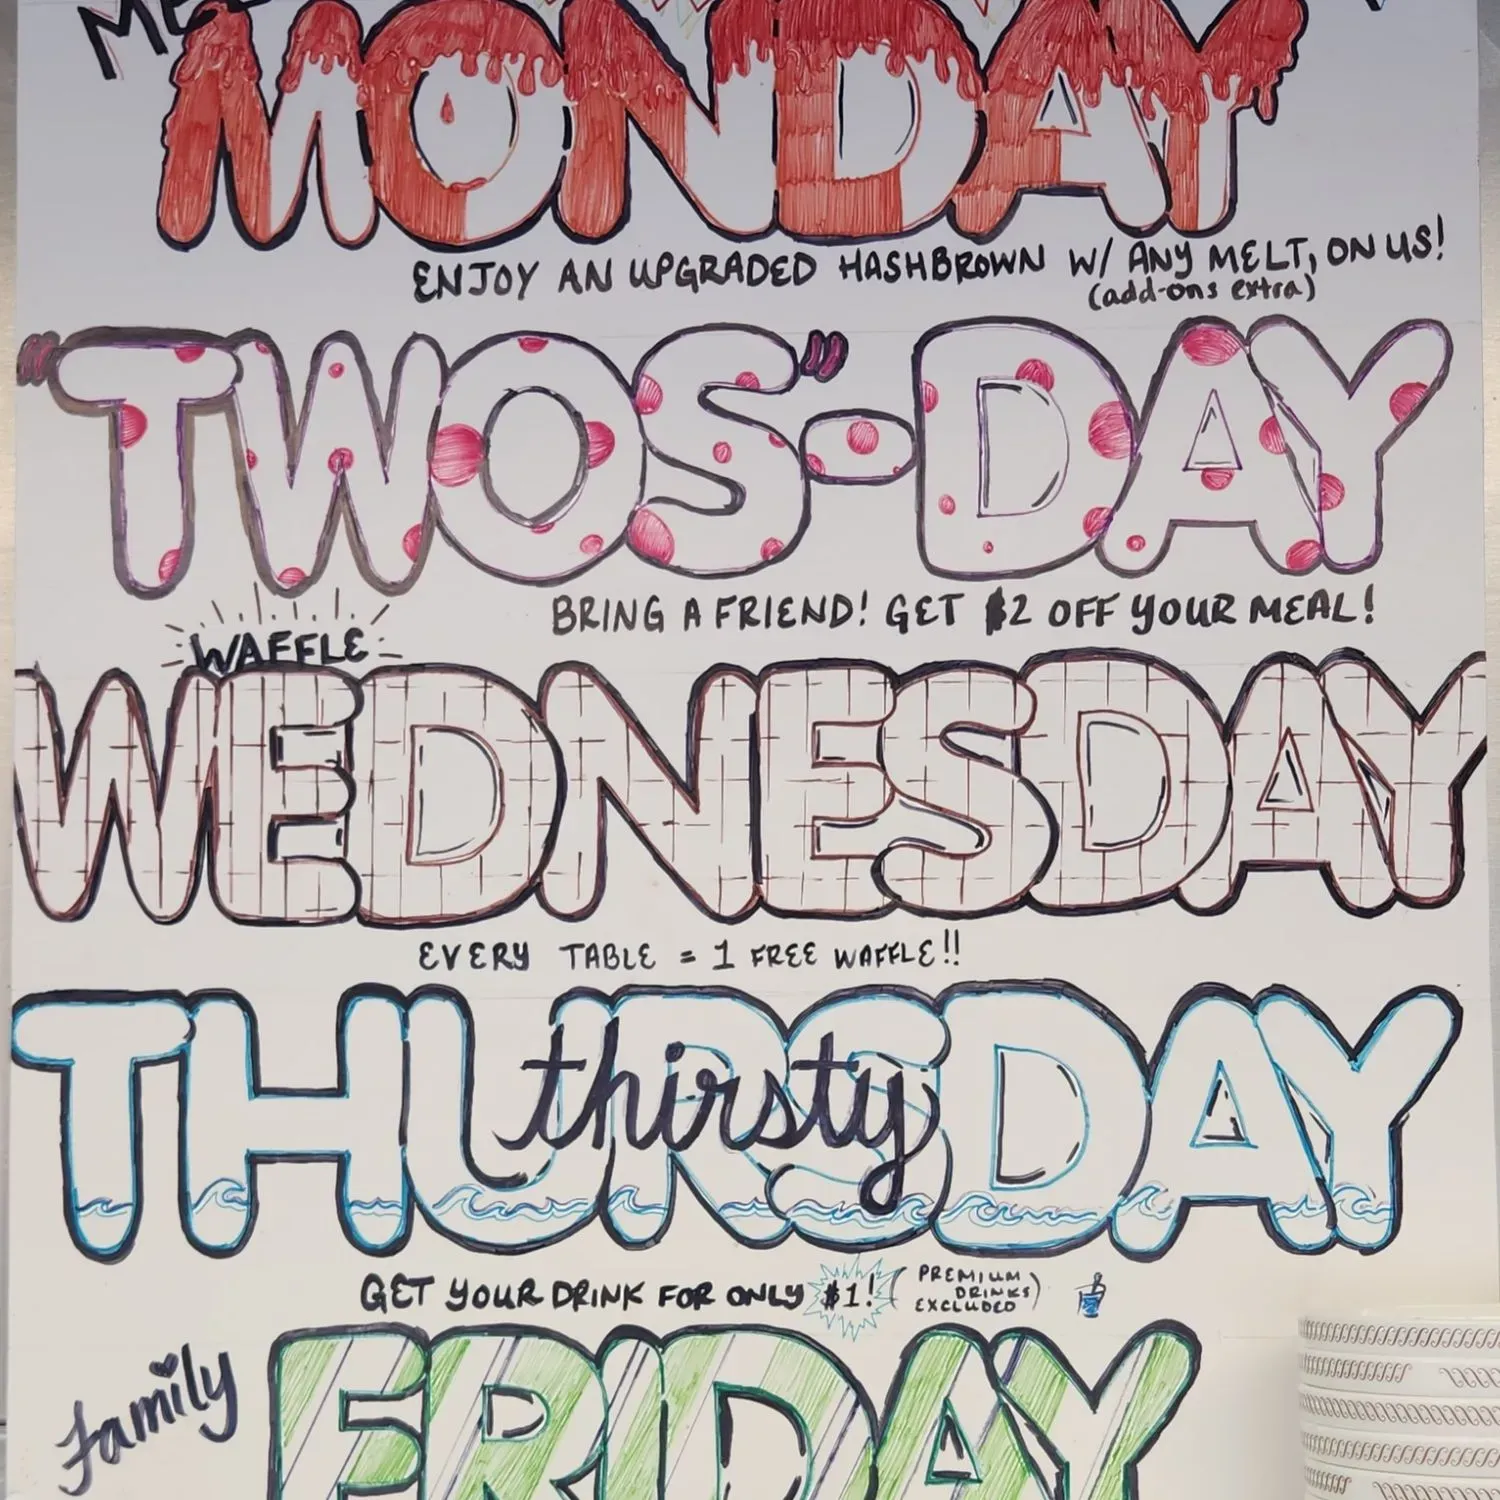 MONDAY
ENJOY AN UPGRADED HASHBROWN W/ ANY MELT, ON US!
(add-ons extra)
"TWOS"-DAY
BRING A FRIEND! GET $2 OFF YOUR MEAL!
WAFFLE
WEDNESDAY
EVERY TABLE = 1 FREE WAFFLE!!
THURSDAY
thirsty
GET YOUR DRINK FOR ONLY $1! (PREMIUM DRINKS EXCLUDED)
Family
FRIDAY